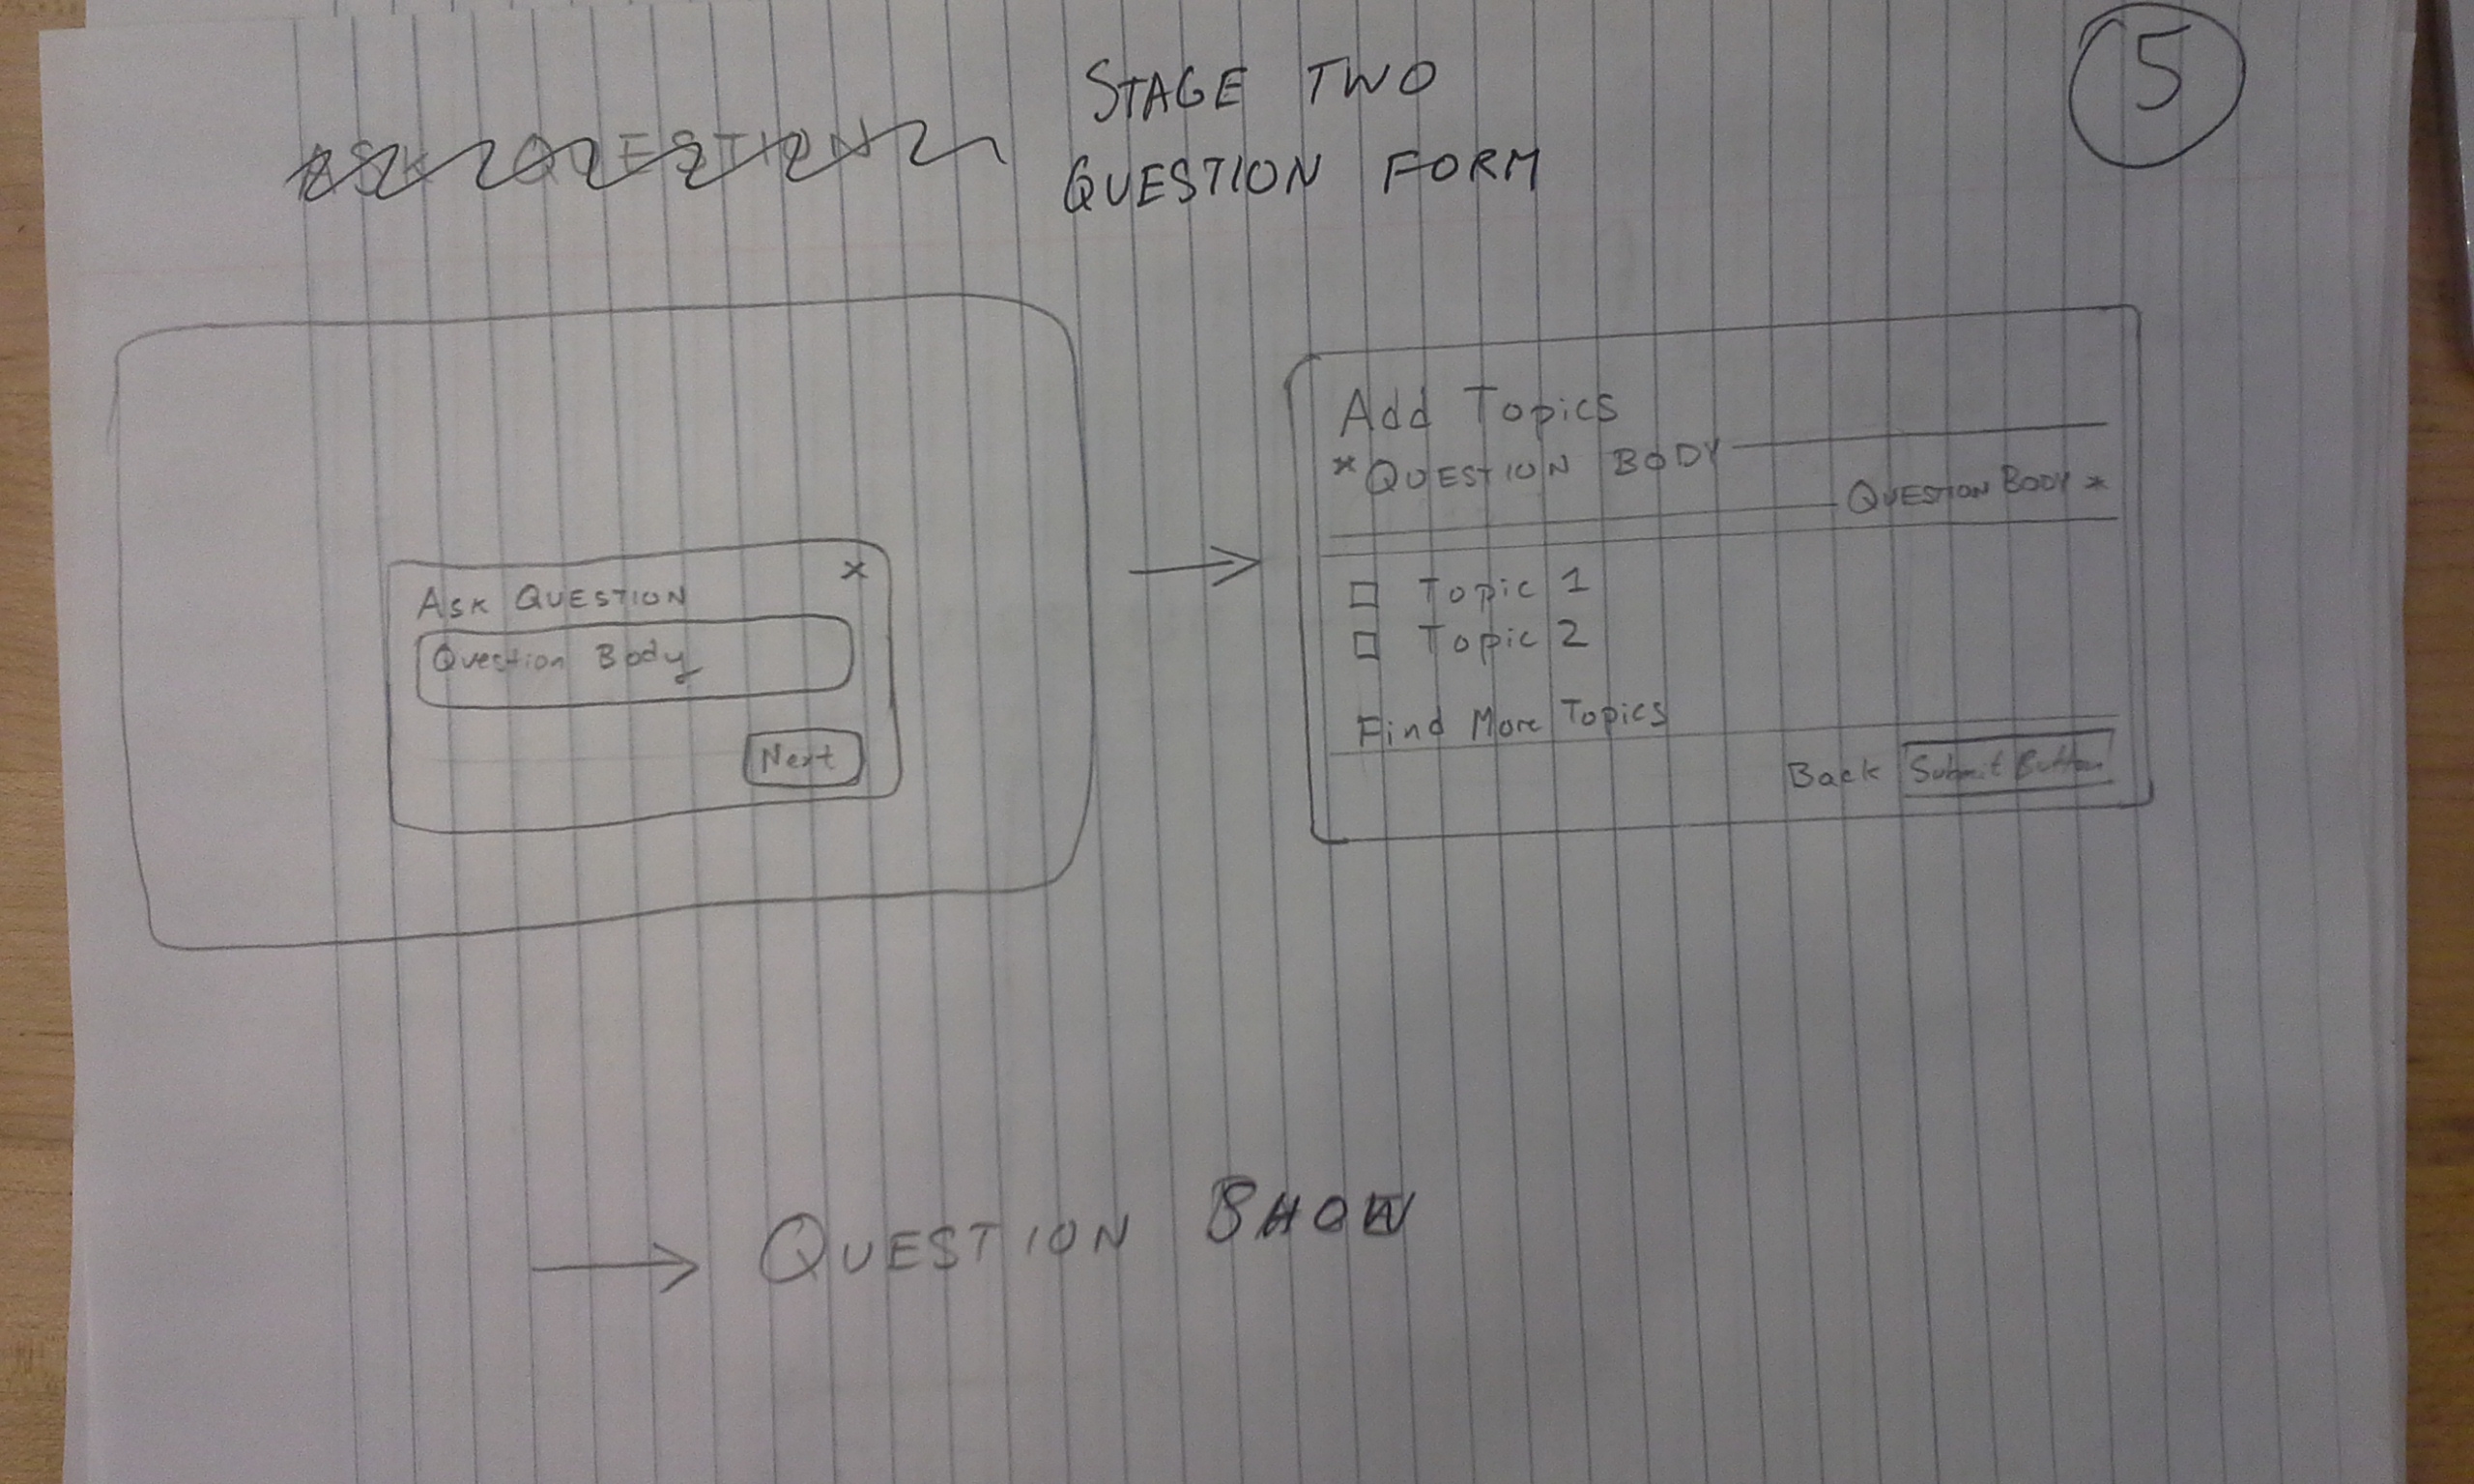 STAGE TWO
5
ASK QUESTION
QUESTION FORM
ASK QUESTION x
Question Body
Next
Add Topics
*QUESTION BODY
QUESTION BODY *
Topic 1
Topic 2
Find More Topics
Back Submit Button
QUESTION SHOW